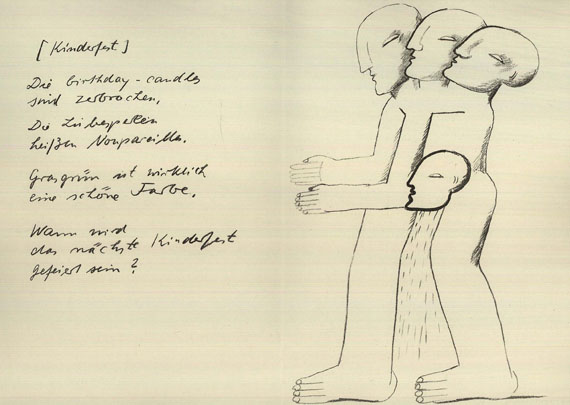 [Kinderfest]
Die birthday-candles
sind zerbrochen,
Die Liebesperlen
heißen Nonpareilles.
Grasgrün ist wirklich
eine schöne Farbe.
Wann wird
das nächste Kinderfest
gefeiert sein?